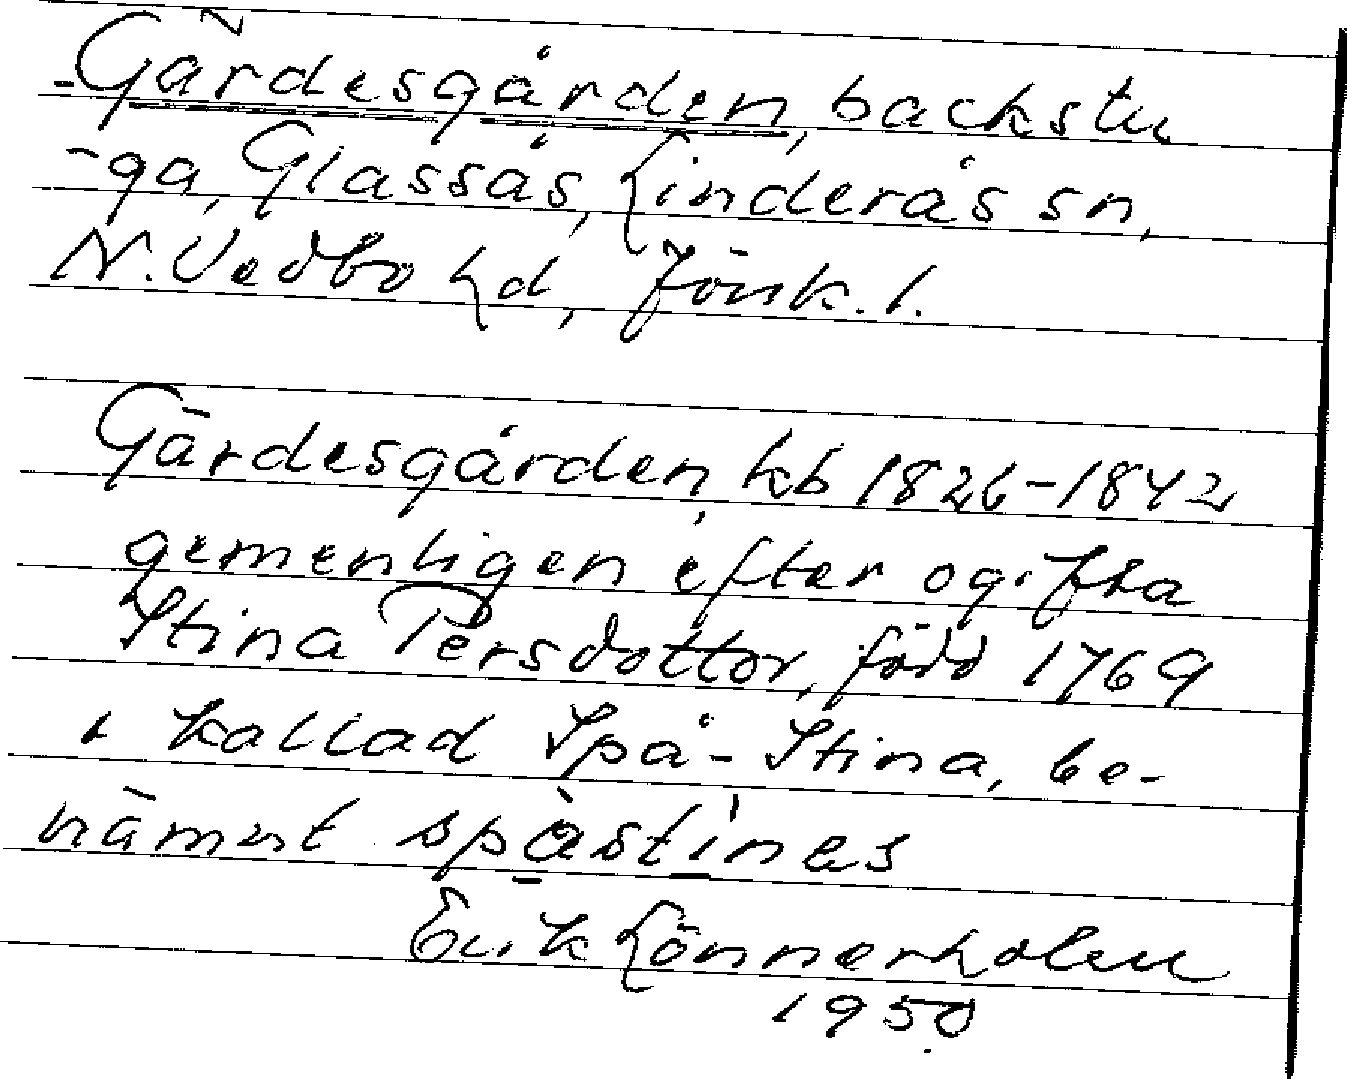 Gärdesgården, backstu
-ga, Glassås, Linderås sn,
N. Vedbo hd, Jönk. l.
Gärdesgården, kb 1826-1842
gemenligen efter ogifta
Stina Persdotter, född 1769
, kallad Spå-Stina, be-
nämnt spåstines
Erik Lönnerholm
1950